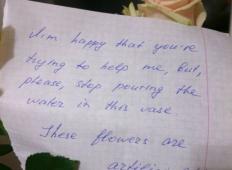 I'm happy that you're
trying to help me, but,
please, stop pouring the
water in this vase
These flowers are